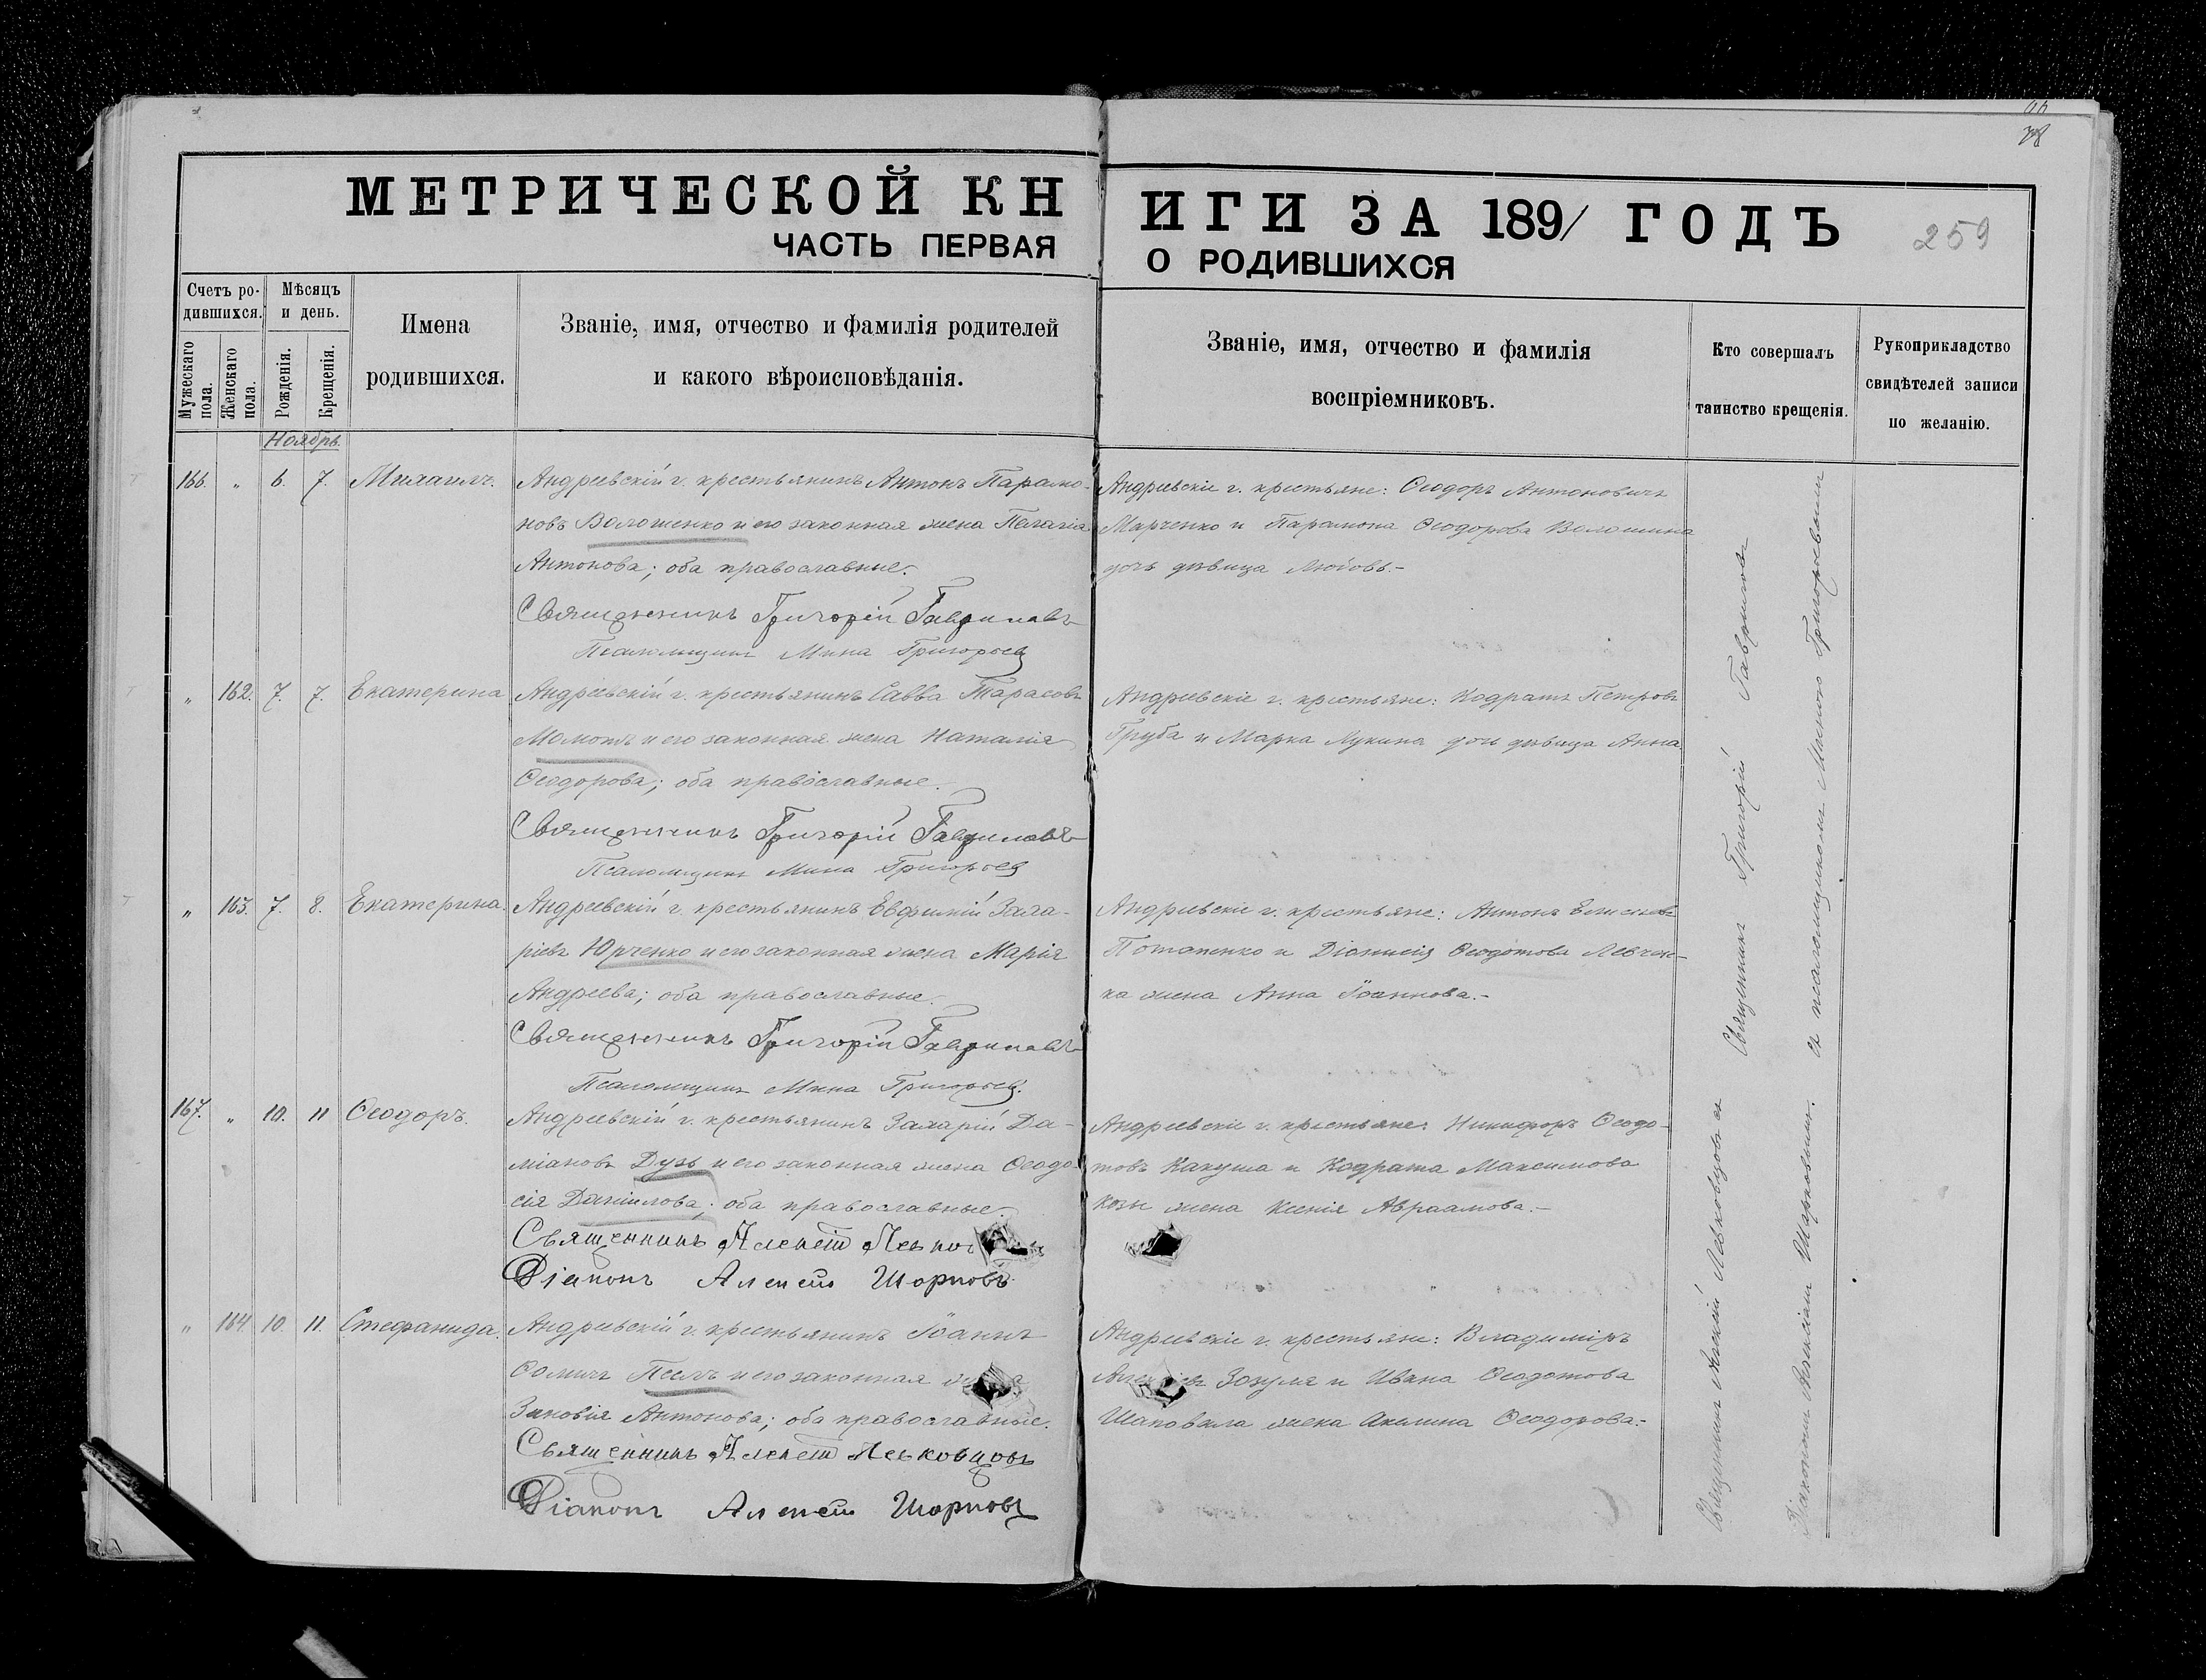 78
МЕТРИЧЕСКОЙ КНИГИ ЗА 1891 ГОДЪ
259
ЧАСТЬ ПЕРВАЯ О РОДИВШИХСЯ
Счетъ ро-
дившихся.
Мужескаго пола.
Женскаго пола.
Мѣсяцъ
и день.
Рожденія.
Крещенія.
Имена
родившихся.
Званіе, имя, отчество и фамилія родителей
и какого вѣроисповѣданія.
Званіе, имя, отчество и фамилія
воспріемниковъ.
Кто совершалъ
таинство крещенія.
Рукоприкладство
свидѣтелей записи
по желанію.
Ноябрь.
166. „ 6. 7. Михаилъ.
Андреевскій г. крестьянинъ Антонъ Парамо-
новъ Волошенко и его законная жена Пелагія
Антонова; оба православные.
Священникъ Григорій Гавриловъ
Псаломщикъ Мина Григорьев
Андреевскіе г. крестьяне: Ѳеодоръ Антоновичъ
Марченко и Парамона Ѳеодорова Волошина
дочь дѣвица Любовь.-
„ 162. 7. 7. Екатерина
Андреевскій г. крестьянинъ Савва Тарасовъ
Момотъ и его законная жена Наталія
Ѳеодорова; оба православные.
Священникъ Григорій Гавриловъ
Псаломщикъ Мина Григорьев
Андреевскіе г. крестьяне: Кодратъ Петровъ
Груба и Марка Лукина дочь дѣвица Анна.
„ 163. 7. 8. Екатерина.
Андреевскій г. крестьянинъ Евфимій Заха-
ріевъ Юрченко и его законная жена Марія
Андреева; оба православные.
Священникъ Григорій Гавриловъ
Псаломщикъ Мина Григорьев.
Андреевскіе г. крестьяне: Антонъ
Потапенко и Діонисія Ѳеодотова Левчен-
ка жена Анна Іоаннова.-
167. „ 10. 11 Ѳеодоръ.
Андреевскій г. крестьянинъ Захарій Да-
міановъ Дузь и его законная жена Ѳеодо-
сія Даніилова; оба православные.
Священникъ Алексѣй
Діаконъ Алексѣй Шорновъ
Андреевскіе г. крестьяне: Никифоръ Ѳеодо-
товъ Какуша и Кодрата Максимова
Козы жена Ксенія Авраамова.-
„ 164. 10. 11. Стефанида.
Андреевскій г. крестьянинъ Іоаннъ
Ѳоминъ и его законная жена
Зиновія Антонова; оба православные.
Священникъ Алексѣй Левковцовъ
Діаконъ Алексѣй Шорновъ
Андреевскіе г. крестьяне: Владиміръ
Зозуля и Ивана Ѳеодотова
Шаповала жена Акилина Ѳеодорова.-
Священникъ Григорій Гавриловъ
съ псаломщикомъ Миною Григорьевымъ
Священникъ Алексій Левковцовъ съ